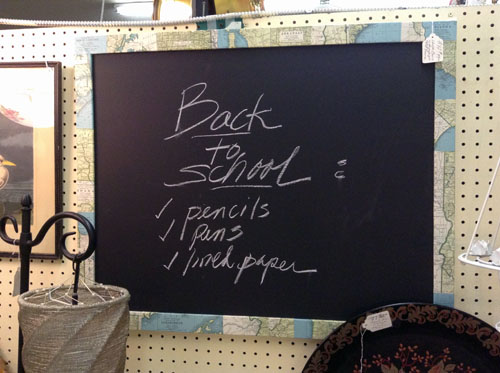 Back
to
school :
✓ pencils
✓ pens
✓ lined paper